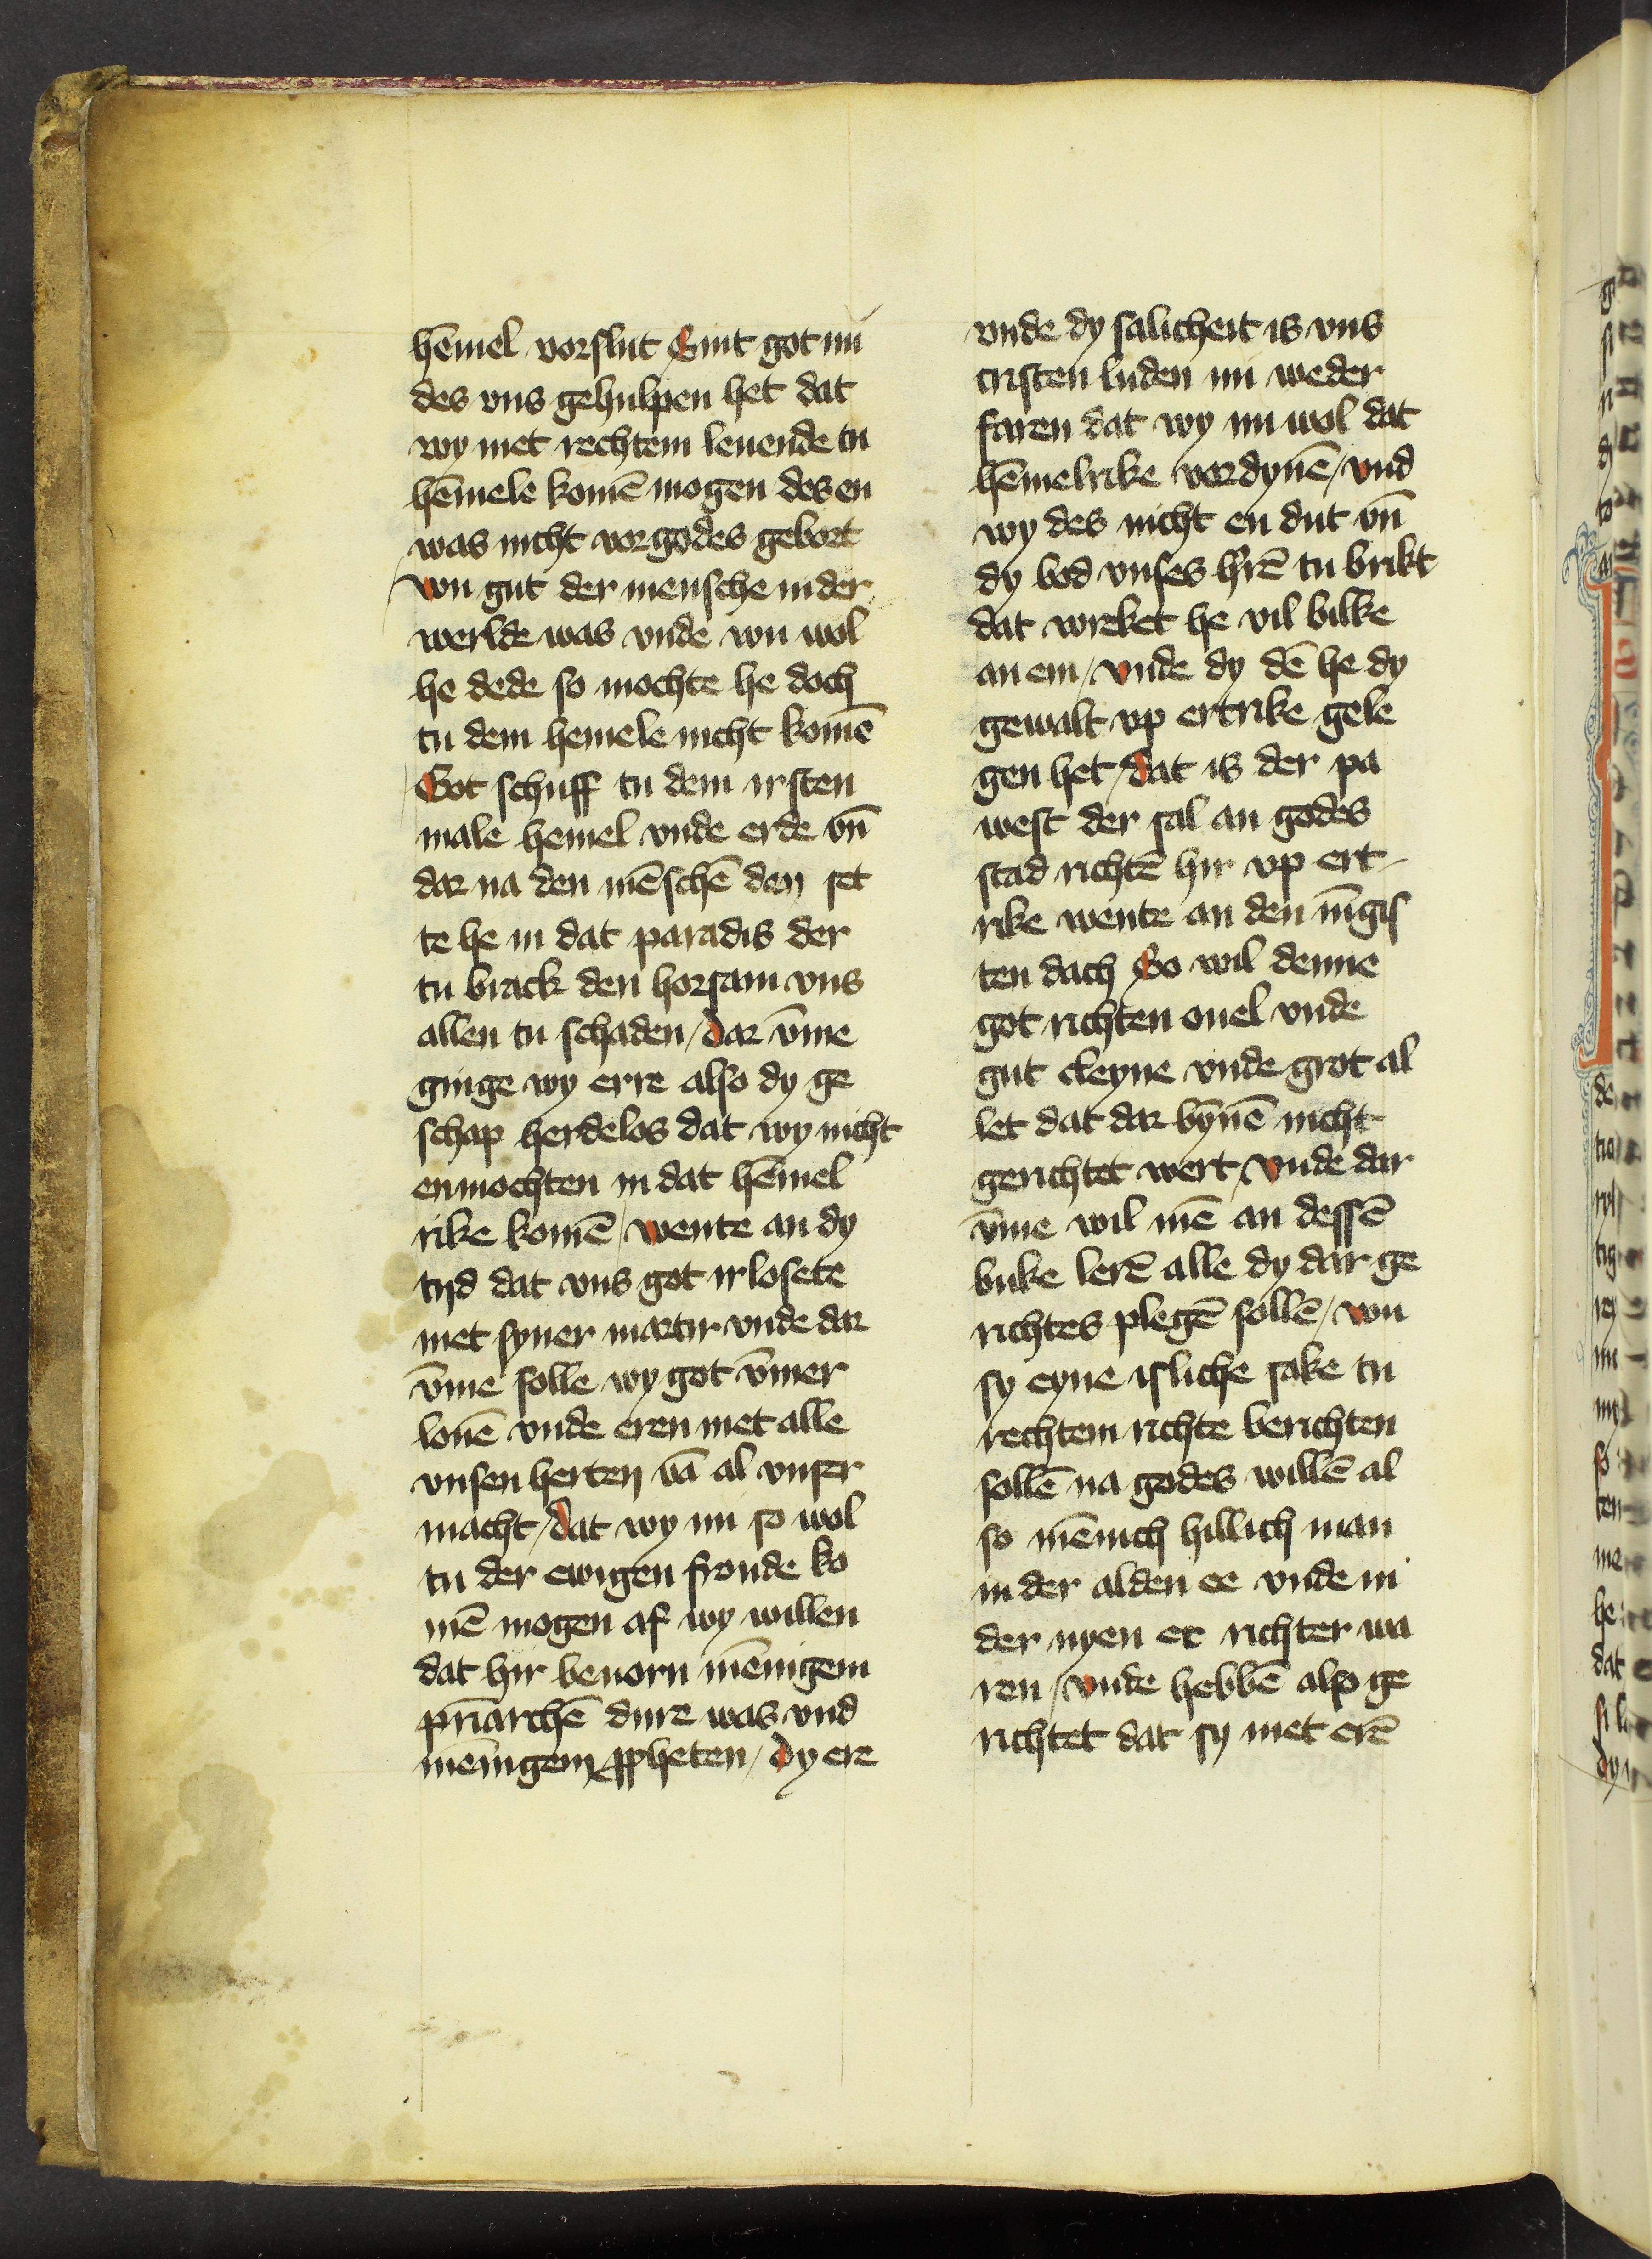 hēmel vorslut Sint got nu
des vns gehulpen het dat
wy met rechtem leuende tu
hēmele komē mogen des en
was nicht vor godes gebort
wu gut der mensche in der
werlde was vnde wu wol
he dede so mochte he doch
tu dem hemele nicht komē
Got schuff tu dem irsten
male hemel vnde erde vn̄
dar na den mēschē den set
te he in dat paradis der
tu brack den horsam vns
allen tu schaden / dar vm̄e
ginge wy erre also dy ge
schap herdelos dat wy nicht
en mochten in dat hēmel
rike komē / wente an dy
tyd dat vns got irlosete
met syner martir vnde dar
vm̄e solle wy got vm̄er
louē vnde eren met alle
vnsen herten vā al vnser
macht / dat wy nu so wol
tu der ewigen froude ko
mē mogen af wy willen
dat hir beuorn mēnigem
pr̄iarchē dure was vnd
mēnigem ꝓpheten / dy ere
vnde dy salicheit is vns
cristen luden nu weder
faren dat wy nu wol dat
hēmelrike vordynē / vnd
wy des nicht en dut vn̄
dy bod vnses hr̄ē tu brikt
dat wreket he vil bilke
an em / vnde dy dē he dy
gewalt vp ertrike gele
gen het / dat is der pa
west der sal an godes
stad richtē hir vp ert
rike wente an den iūgis
ten dach So wil denne
got richten ouel vnde
gut cleyne vnde grot al
let dat dar bynē nicht
gerichtet wert / vnde dar
vm̄e wil mē an dessē
buke lerē alle dy dar ge
richtes plegē sollē / wu
sy eyne isliche sake tu
rechtem richte berichten
sollē na godes willē al
so mēnich hillich man
in der alden ee vnde in
der nyen ee richter wa
ren / vnde hebbē also ge
richtet dat sy met erē